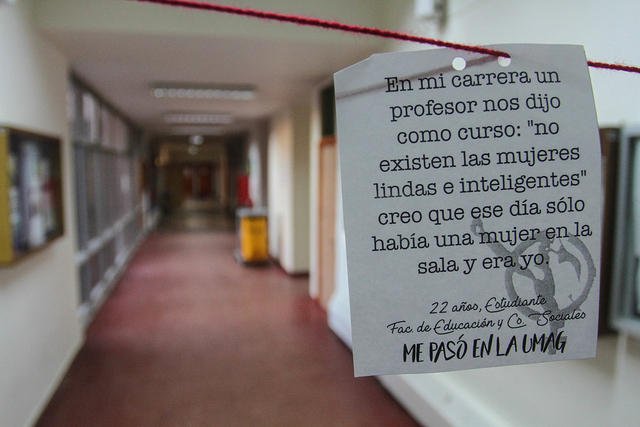 En mi carrera un
profesor nos dijo
como curso: "no
existen las mujeres
lindas e inteligentes"
creo que ese día sólo
había una mujer en la
sala y era yo.
22 años, Estudiante
Fac. de Educación y Cs. Sociales
ME PASÓ EN LA UMAG